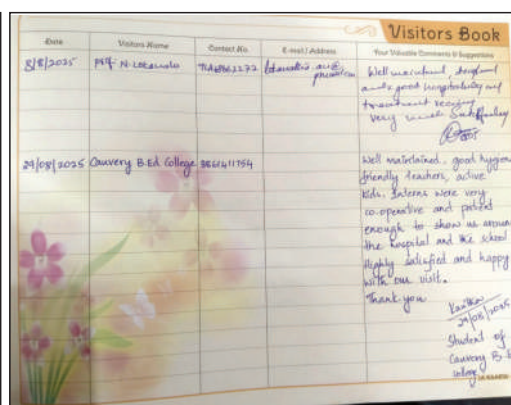 Visitors Book
Date Visitors Name Contact No. E-mail / Address Your Valuable Comments & Suggestions
8/8/2025 Prof. N.
Well maintained,
and good hospitality and
treatment
very much
29/08/2025 Cauvery B.Ed College
Well maintained, good hygiene
friendly teachers, active
kids. Interns were very
co-operative and patient
enough to show us around
the hospital and the school
Highly satisfied and happy
with our visit.
Thank you
29/08/2025
Student of
Cauvery B.E
college